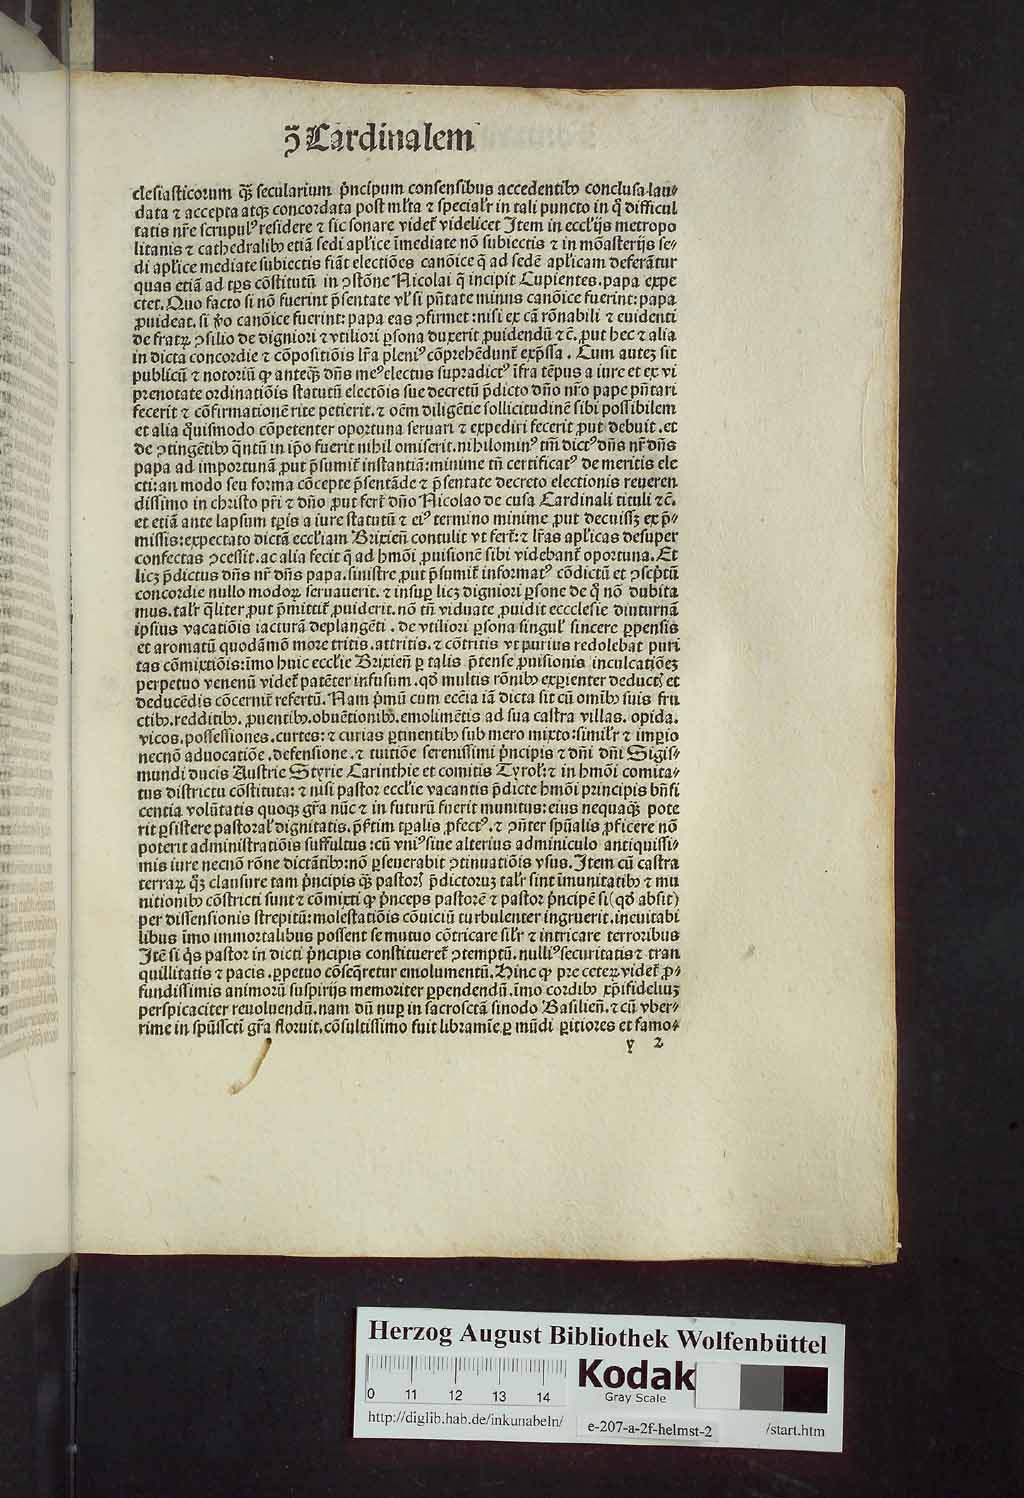 ꝯ̃ Cardinalem
clesiasticorum qꝫ̃ secularium p̃ncipum consensibus accedentibꝰ conclusa lau⸗
data ⁊ accepta atqꝫ concordata post ml̃ta ⁊ special'r in tali puncto in q̃ difficul
tatis nr̃e scrupulꝰ residere ⁊ sic sonare videt᷑ videlicet Item in eccl'ijs metropo
litanis ⁊ cathedralibꝰ etiã sedi apl'ice ĩmediate nõ subiectis ⁊ in mõasterijs se⸗
di apl'ice mediate subiectis fiãt electiões canõice q̃ ad sedẽ apl'icam deferãtur
quas etiã ad tp̃s cõstitutũ in ꝯstõne Nicolai q̃ incipit Cupientes. papa expe
ctet. Quo facto si nõ fuerint p̃sentate vl' si pñtate minus canõice fuerint: papa
ꝓuideat. si ṽo canõice fuerint: papa eas ꝯfirmet: nisi ex cã rõnabili ⁊ euidenti
de fratꝝ ꝯsilio de digniori ⁊ vtiliori ꝑsona duxerit ꝓuidendũ ⁊c̃. ꝓut hec ⁊ alia
in dicta concordie ⁊ cõpositiõis lr̃a pleniꝰ cõprehẽdunt᷑ exp̃ssa. Cum autẽ sit
publicũ ⁊ notoriũ ꝙ anteqꝫ̃ dñs meꝰ electus supradictꝰ ĩfra tẽpus a iure et ex vi
prenotate ordinatiõis statutũ electõis sue decretũ p̃dicto dño nr̃o pape pñtari
fecerit ⁊ cõfirmationẽ rite petierit. ⁊ oẽm diligẽtie sollicitudinẽ sibi possibilem
et alia q̃uismodo cõpetenter oportuna seruari ⁊ expediri fecerit ꝓut debuit. et
de ꝯtingẽtibꝰ q̃ntũ in ip̃o fuerit nihil omiserit. nihilominꝰ tm̃ dictꝰ dñs nr̃ dñs
papa ad importunã ꝓut p̃sumit᷑ instantiã: minime tñ certificatꝰ de meritis ele
cti: an modo seu forma cõcepte p̃sentãde ⁊ p̃sentate decreto electionis reueren
dissimo in christo pr̃i ⁊ dño ꝓut fert᷑ dño Nicolao de cusa Cardinali tituli ⁊c̃.
et etiã ante lapsum tp̃is a iure statutũ ⁊ eiꝰ termino minime ꝓut decuissꝫ ex p̃⸗
missis: expectato dictã eccl'iam Brixieñ contulit vt fert᷑: ⁊ lr̃as apl'icas desuper
confectas ꝯcessit. ac alia fecit q̃ ad hmõi ꝓuisionẽ sibi videbant᷑ oportuna. Et
licꝫ p̃dictus dñs nr̃ dñs papa. sinistre ꝓut p̃sumit᷑ informatꝰ cõdictũ et ꝯsep̃tũ
concordie nullo modoꝝ seruauerit. ⁊ insuꝑ licꝫ digniori ꝑsone de q̃ nõ dubita
mus. tal'r q̃liter ꝓut p̃mittit᷑ ꝓuiderit. nõ tñ viduate ꝓuidit ecclesie diuturnã
ipsius vacatiõis iacturã deplangẽti. de vtiliori ꝑsona singul' sincere ꝑpensis
et aromatũ quodãmõ more tritis. attritis. ⁊ cõtritis vt purius redolebat puri
tas cõmixtiõis: ĩmo huic eccl'ie Brixieñ ꝑ talis p̃tense ꝓuisionis inculcatiõeꝫ
perpetuo venenũ videt᷑ patẽter infusum. qd̾ multis rõnibꝰ experienter deductꝭ et
deducẽdis cõcernit᷑ refertũ. Nam p̃mũ cum eccẽia iã dicta sit cũ omibꝰ suis fru
ctibꝰ. redditibꝰ. ꝓuentibꝰ. obuẽtionibꝰ. emolimẽtis ad sua castra villas. opida.
vicos. possessiones. curtes: ⁊ curias ꝑtinentibꝰ sub mero mixto: simil'r ⁊ imꝑio
necnõ aduocatiõe. defensione. ⁊ tuitiõe serenissimi p̃ncipis ⁊ dñi dñi Sigis⸗
mundi ducis Austrie Styrie Carinthie et comitis Tyrol': ⁊ in hmõi comita⸗
tus districtu cõstituta: ⁊ nisi pastor eccl'ie vacantis p̃dicte hmõi principis bñfi
centia volũtatis quoqꝫ gr̃a nũc ⁊ in futurũ fuerit munitus: eius nequaqꝫ̃ pote
rit ꝑsistere pastoral' dignitatis. p̃ſtim tꝑalis ꝓfectꝰ. ⁊ ꝯñter spũalis ꝓficere nõ
poterit administratiõis suffultus: cũ vniꝰ siue alterius adminiculo antiquissi⸗
mis iure necnõ rõne dictãtibꝰ: nõ ꝑseuerabit ꝯtinuatiõis vsus. Item cũ castra
terraꝝ qꝫ̃ clausure tam p̃ncipis qꝫ̃ pastorꝭ p̃dictoruꝫ tal'r sint ĩmunitatibꝰ ⁊ mu
nitionibꝰ cõstricti sunt ⁊ cõmixti ꝙ p̃nceps pastorẽ ⁊ pastor p̃ncipẽ si (qd̾ absit)
per dissensionis strepitũ: molestatiõis cõuiciũ turbulenter ingruerit. ineuitabi
libus ĩmo immortalibus possent se mutuo cõtricare sil'r ⁊ intricare terroribus
Itẽ si q̃s pastor in dicti p̃ncipis constitueret᷑ ꝯtemptũ. nulliꝰ securitatis ⁊ tran
quillitatis ⁊ pacis. ꝑpetuo cõseq̃retur emolumentũ. Hinc ꝙ pre ceteꝝ videt᷑ ꝓ⸗
fundissimis animorũ suspirijs memoriter ꝑpendendũ. ĩmo cordibꝰ xp̃ifideliuꝫ
perspicaciter reuoluendũ. nam dũ nuꝑ in sacrosctã sinodo Basilieñ. ⁊ cũ vber⸗
rime in spũssctĩ gr̃a floruit. cõsultissimo fuit libramĩe. ꝑ mũdi ꝑitiores et famo⸗
y 2
Herzog August Bibliothek Wolfenbüttel
Kodak
Gray Scale
0 11 12 13 14
http://diglib.hab.de/inkunabeln/
e-207-a-2f-helmst-2
/start.htm